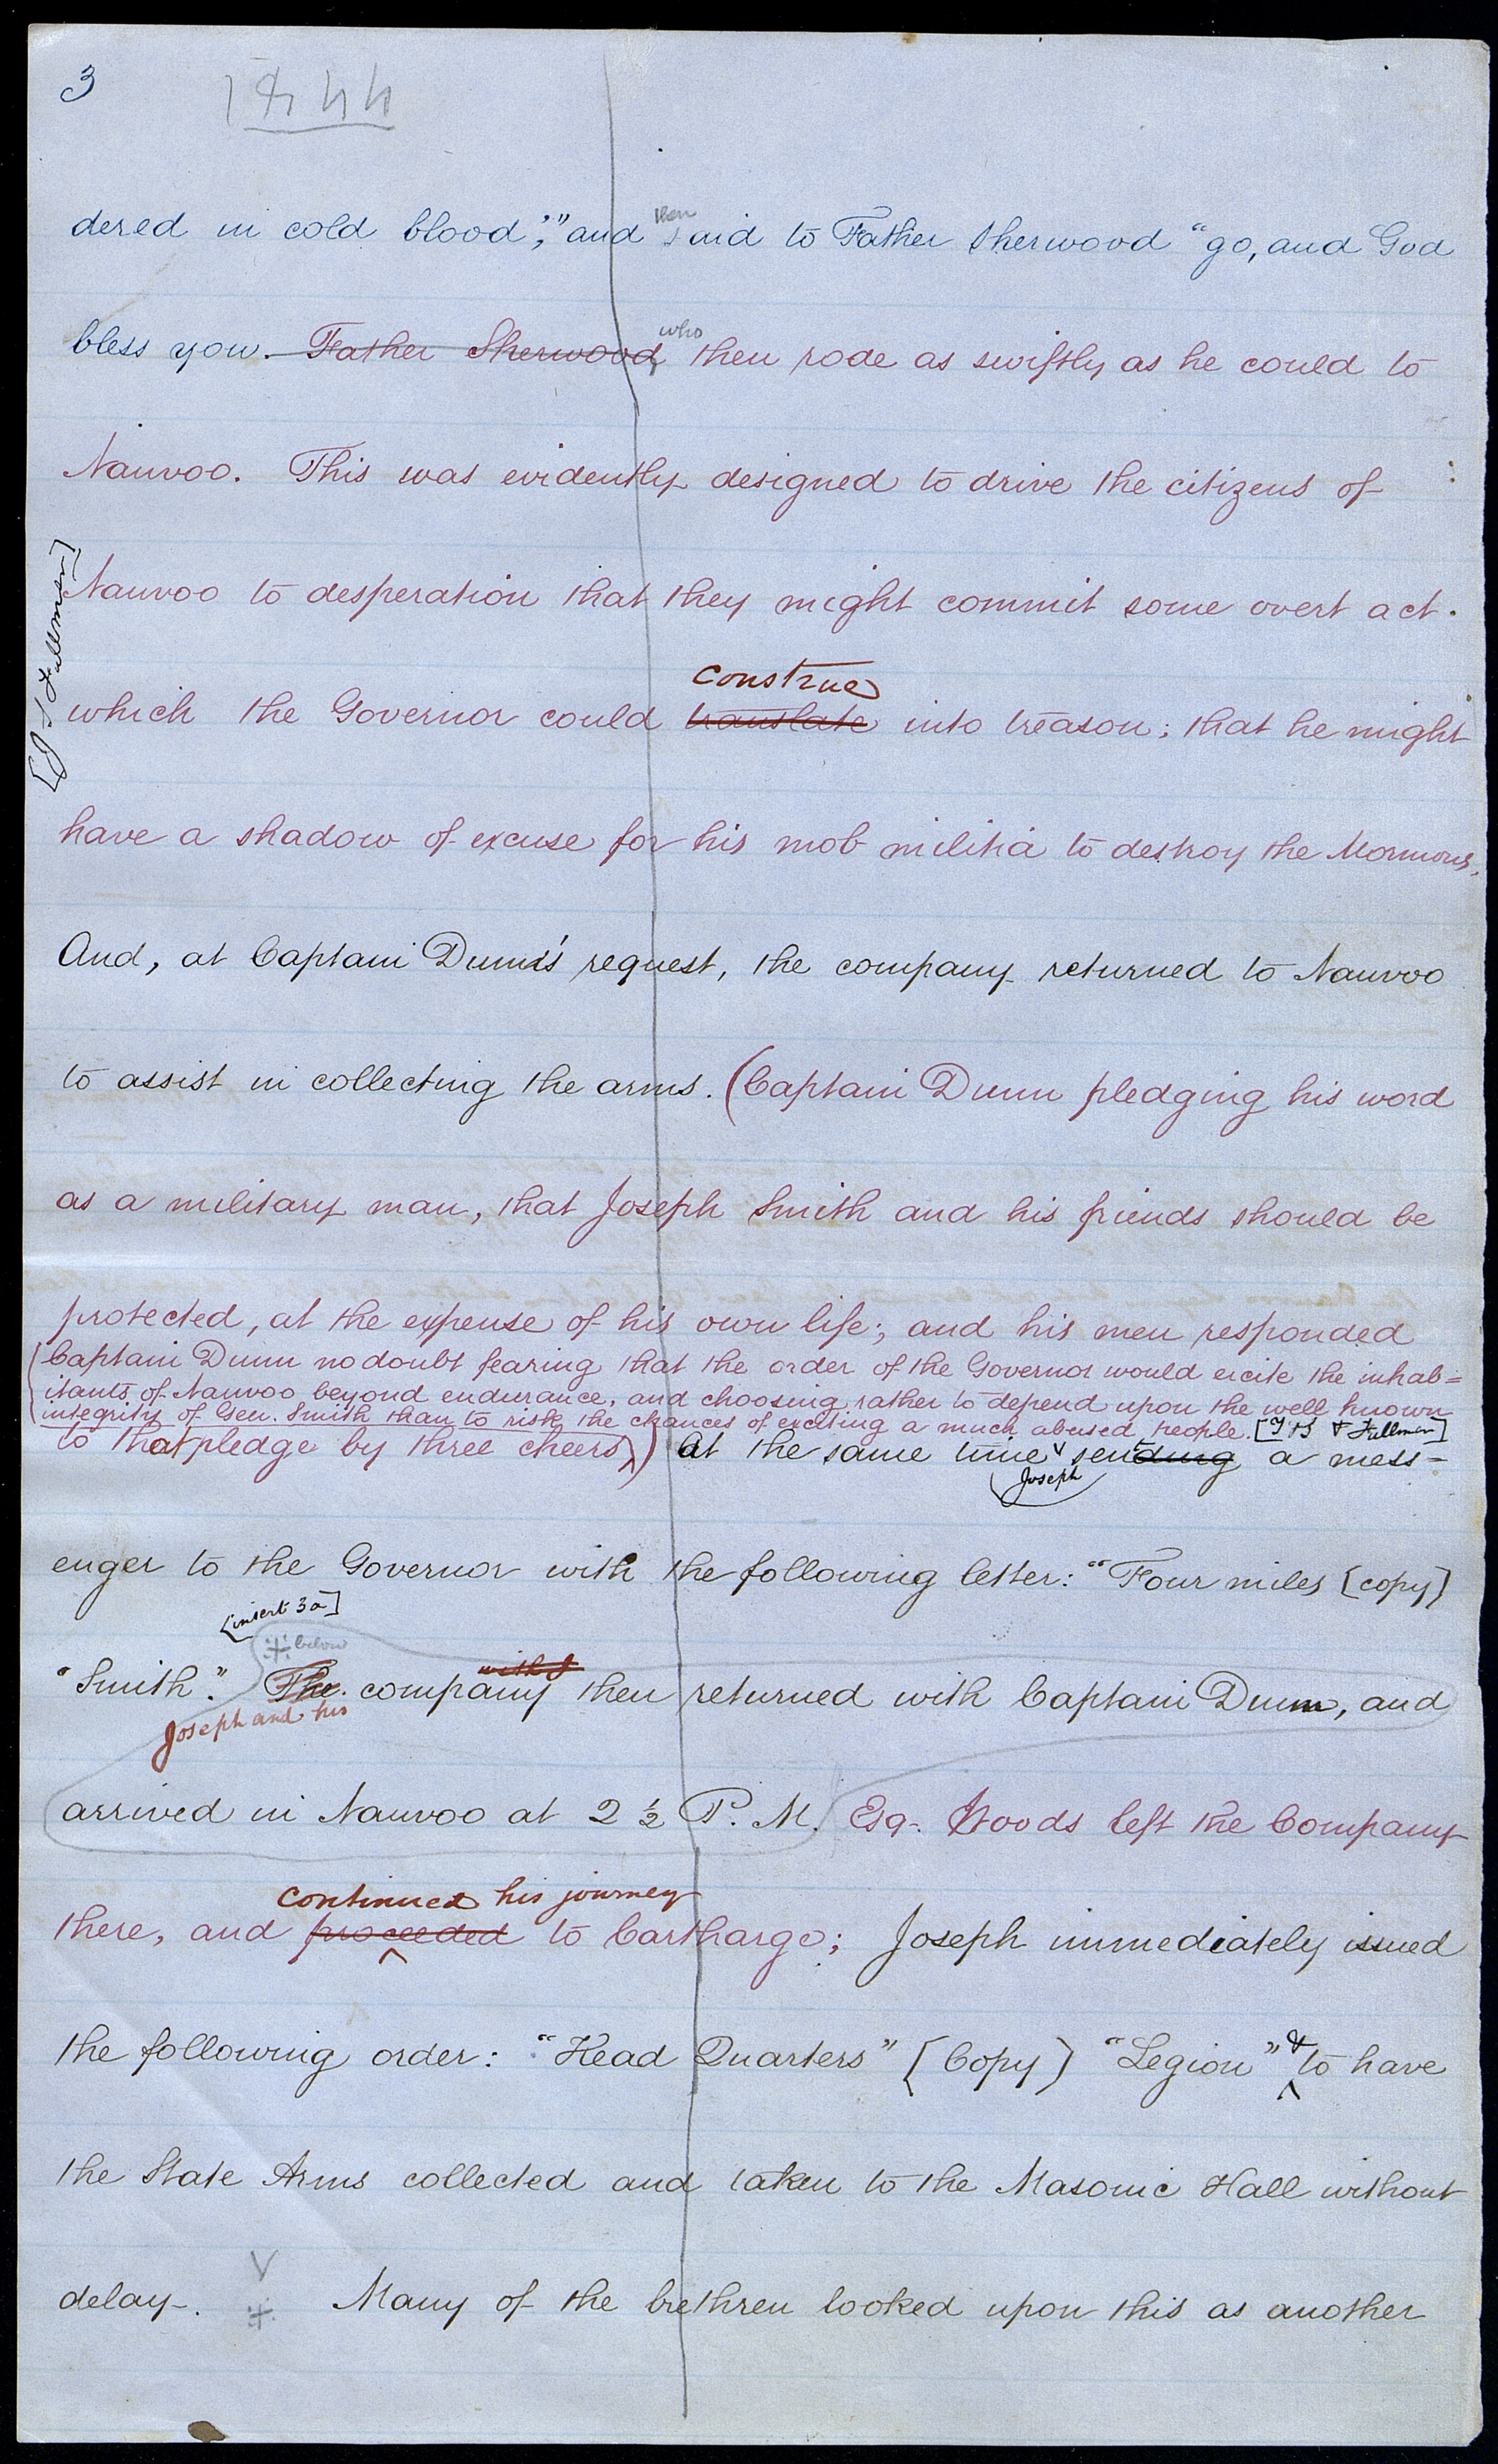 3
1844
dered in cold blood," and then said to Father Sherwood "go, and God
bless you. Father Sherwood who then rode as swiftly as he could to
Nauvoo. This was evidently designed to drive the citizens of
Nauvoo to desperation that they might commit some overt act
[J S Fullmer]
construe
which the Governor could translate into treason; that he might
have a shadow of excuse for his mob militia to destroy the Mormons,
And, at Captain Dunn's request, the company returned to Nauvoo
to assist in collecting the arms. (Captain Dunn pledging his word
as a military man, that Joseph Smith and his friends should be
protected, at the expense of his own life; and his men responded
(Captain Dunn no doubt fearing that the order of the Governor would excite the inhab=
itants of Nauvoo beyond endurance, and choosing rather to depend upon the well known
integrity of Gen. Smith than to risk the chances of exciting a much abused people. [J S Fullmer]
to that pledge by three cheers) at the same time sending a mess=
Joseph
enger to the Governor with the following letter: "Four miles [copy]
[insert 3a]
below
"Smith." The company with J then returned with Captain Dunn, and
Joseph and his
arrived in Nauvoo at 2 ½ P. M. Esq. Woods left the Company
continued his journey
there, and proceeded to Carthargo; Joseph immediately issued
the following order: "Head Quarters" [Copy] "Legion" & to have
the State Arms collected and taken to the Masonic Hall without
delay. Many of the brethren looked upon this as another